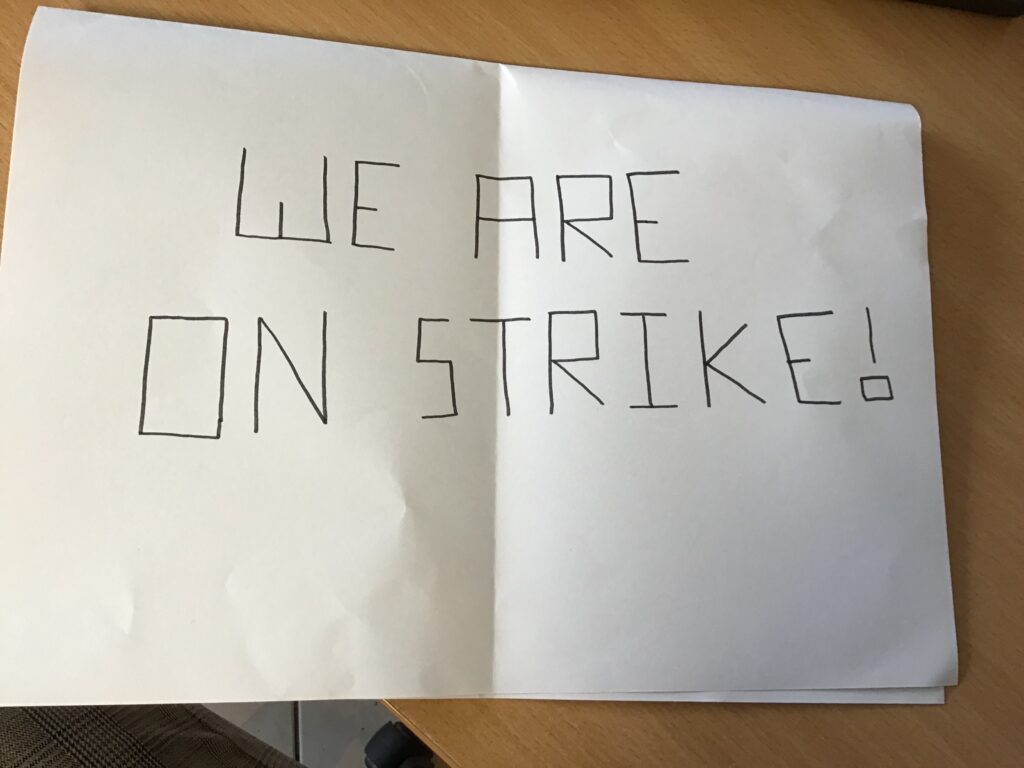 WE ARE
ON STRIKE!